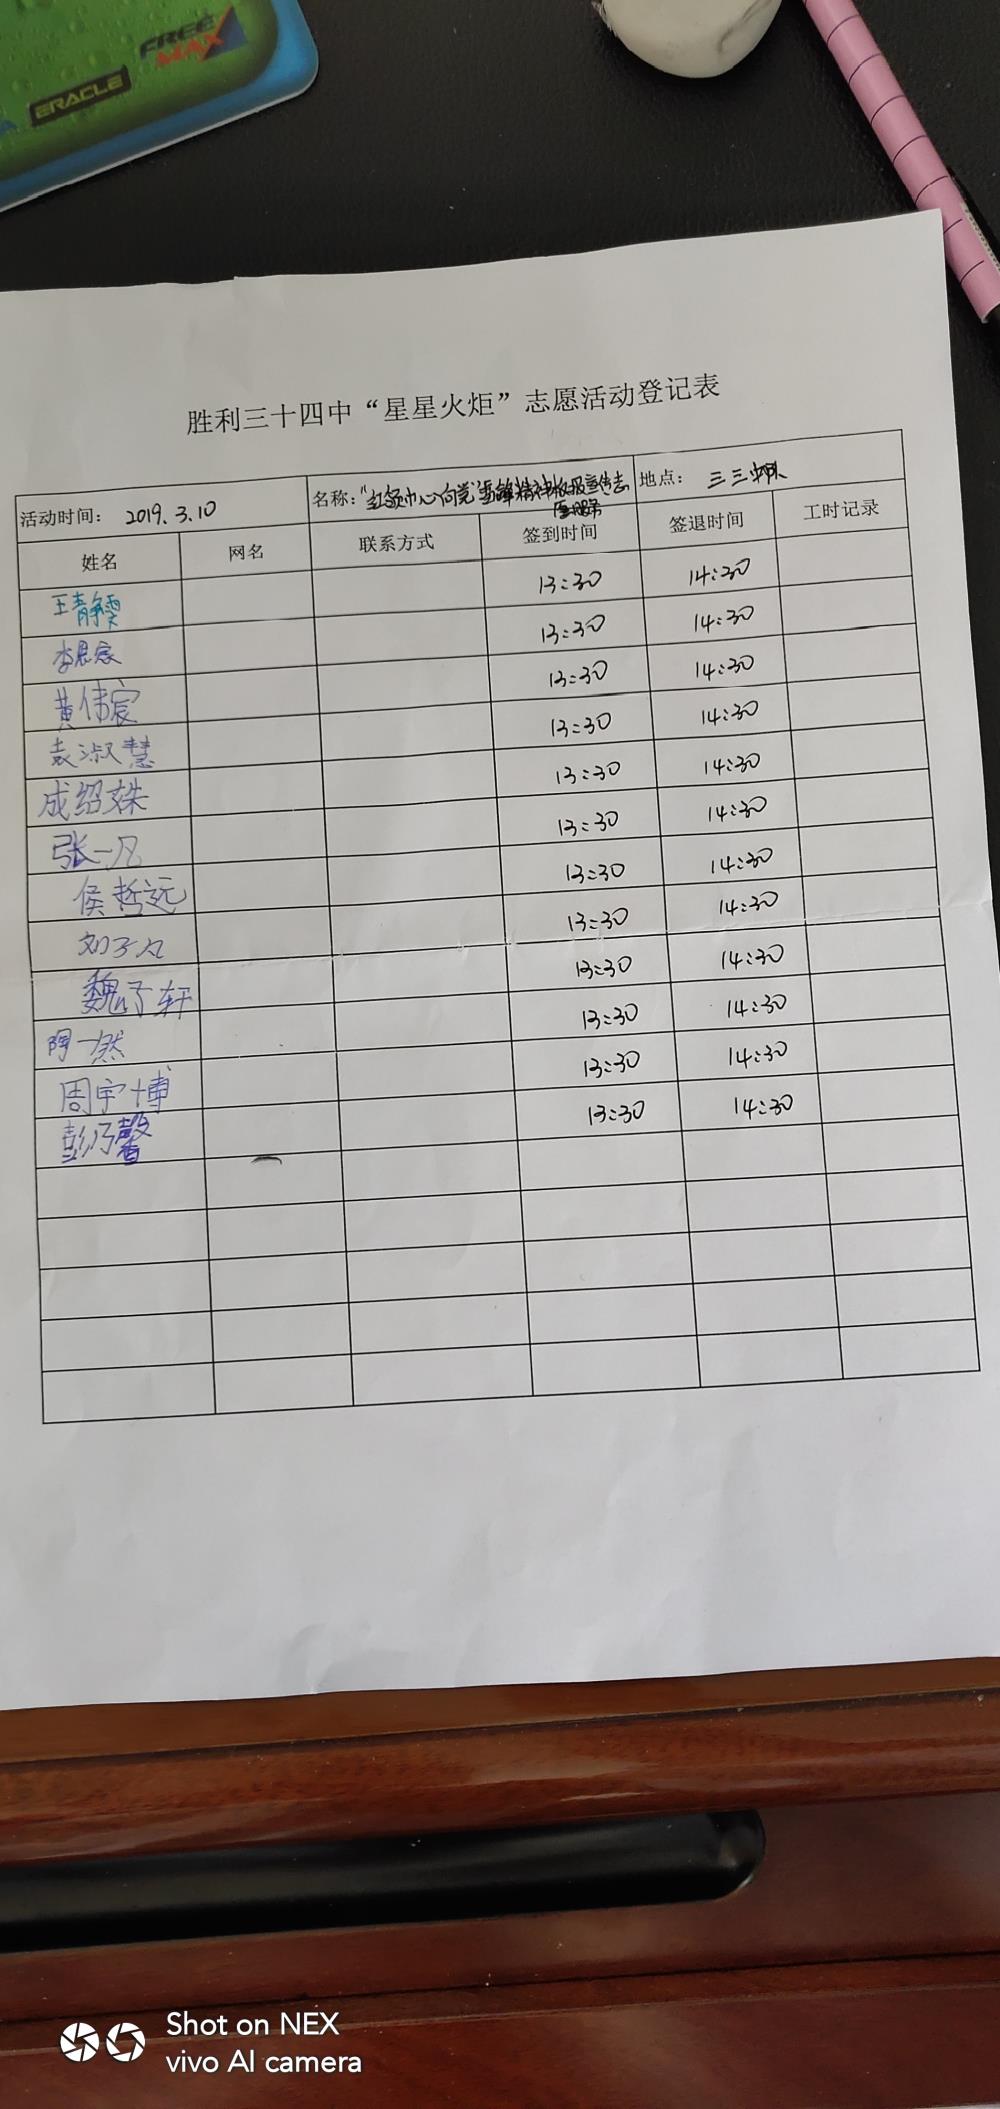 FREE
MAX
ERACLE
胜利三十四中“星星火炬”志愿活动登记表
活动时间： 2019.3.10 名称：“红领巾心向党”雷锋精神板报宣传志愿服务 地点： 三三中队
姓名 网名 联系方式 签到时间 签退时间 工时记录
王静雯 13:30 14:30
李思宸 13:30 14:30
黄伟宸 13:30 14:30
袁淑慧 13:30 14:30
成绍姝 13:30 14:30
张一凡 13:30 14:30
侯哲远 13:30 14:30
刘子凡 13:30 14:30
魏子轩 13:30 14:30
陶一然 13:30 14:30
周宇博 13:30 14:30
彭乃馨 13:30 14:30
Shot on NEX
vivo AI camera